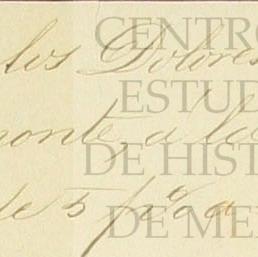 los Dolores
monte, a la
de 5 p% a
CENTRO
ESTUD
DE HIST
DE ME